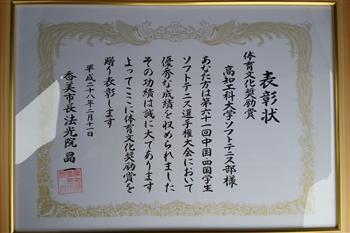 表彰状
体育文化奨励賞
高知工科大学ソフトテニス部様
あなた方は第六十一回中国四国学生
ソフトテニス選手権大会において
優秀な成績を収められました
その功績は誠に大であります
よってここに体育文化奨励賞を
贈り表彰します
平成二十八年二月十一日
香美市長 法光院 晶一